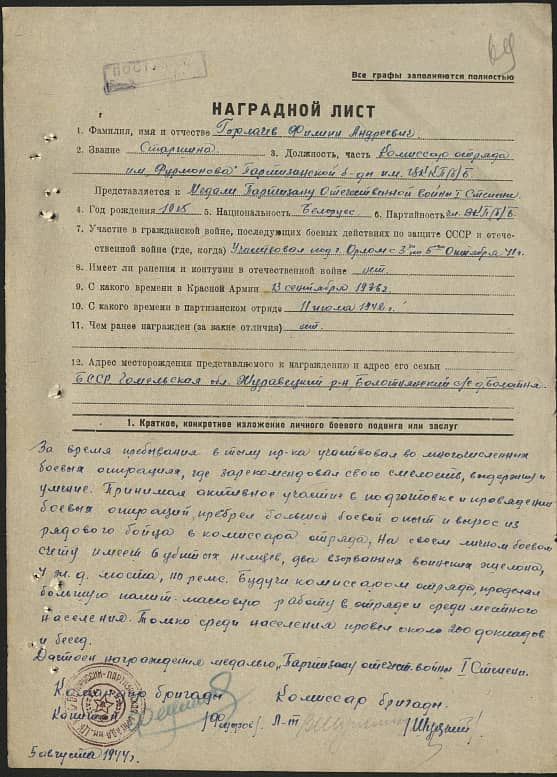 69
ПОСТУ
Все графы заполняются полностью
НАГРАДНОЙ ЛИСТ
1. Фамилия, имя и отчество Горлачев Филипп Андреевич.
2. Звание Старшина 3. Должность, часть Комиссар отряда
им. Фурмонова Партизанской б-ды им. ЦККП/б/Б
Представляется к Медали Партизану Отечественной войны I Степени
4. Год рождения 1915 5. Национальность Белорус 6. Партийность
7. Участие в гражданской войне, последующих боевых действиях по защите СССР и отече-
ственной войне (где, когда) Участвовал под г. Орлом с 3го по 5ое Октября 41 г.
8. Имеет ли ранения и контузии в отечественной войне нет.
9. С какого времени в Красной Армии 13 сентября 1936 г.
10. С какого времени в партизанском отряде 11 июля 1942 г.
11. Чем ранее награжден (за какие отличия) нет.
12. Адрес месторождения представляемого к награждению и адрес его семьи
БССР Гомельская обл. Журавецкий р-н, Болотнянский с/с д. Болотня.
1. Краткое, конкретное изложение личного боевого подвига или заслуг
За время пребывания в тылу пр-ка участвовал во многочисленных
боевых операциях, где зарекомендовал свою смелость, выдержку и
умение. Принимал активное участие в подготовке и проведении
боевых операций, преобрел большой боевой опыт и вырос из
рядового бойца в комиссара отряда. На своем личном боевом
счету имеет 6 убитых немцев, два взорванных воинских эшелона,
ж. д. моста, 110 рельс. Будучи комиссаром отряда, проделал
большую полит-массовую работу в отряде и среди местного
населения. Только среди населения провел около 200 докладов
и бесед.
Достоен награждения медалью "Партизану отечеств. войны I Степени.
Командир бригады Комиссар бригады.
Капитан Л-т
5 августа 1944 г.